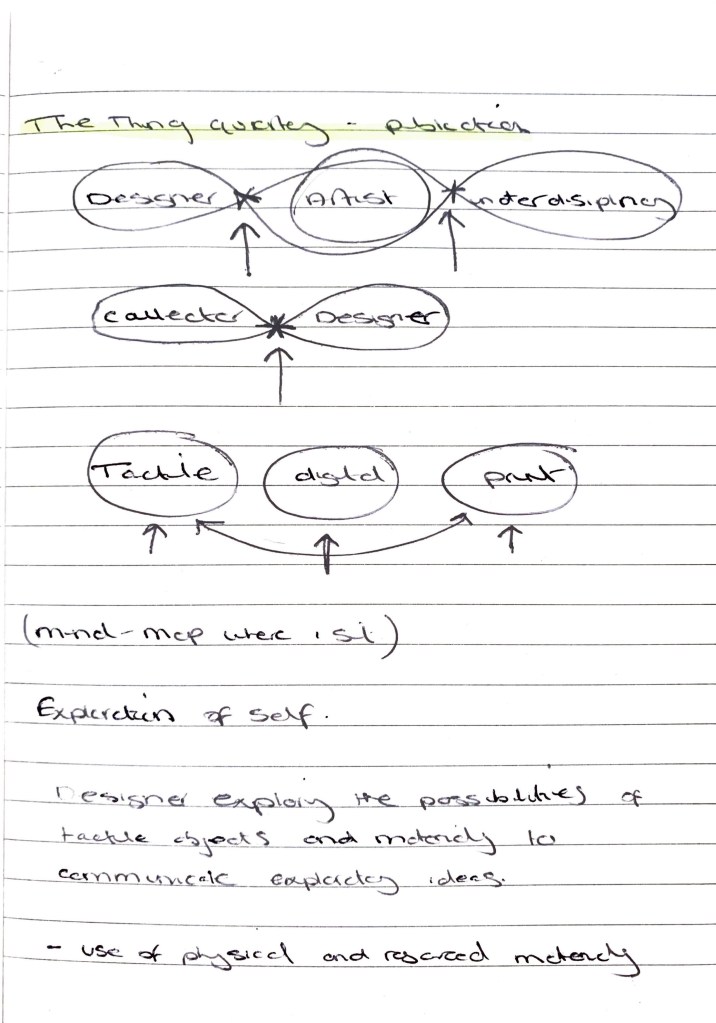 The Thing quarterly - publication
Designer Artist interdisiplinary
Collector Designer
Tactile digital print
(mind-map where i sit)
Exploration of self.
Designer exploring the possibilities of
tactile objects and materials to
communicate exploratory ideas.
- use of physical and materials